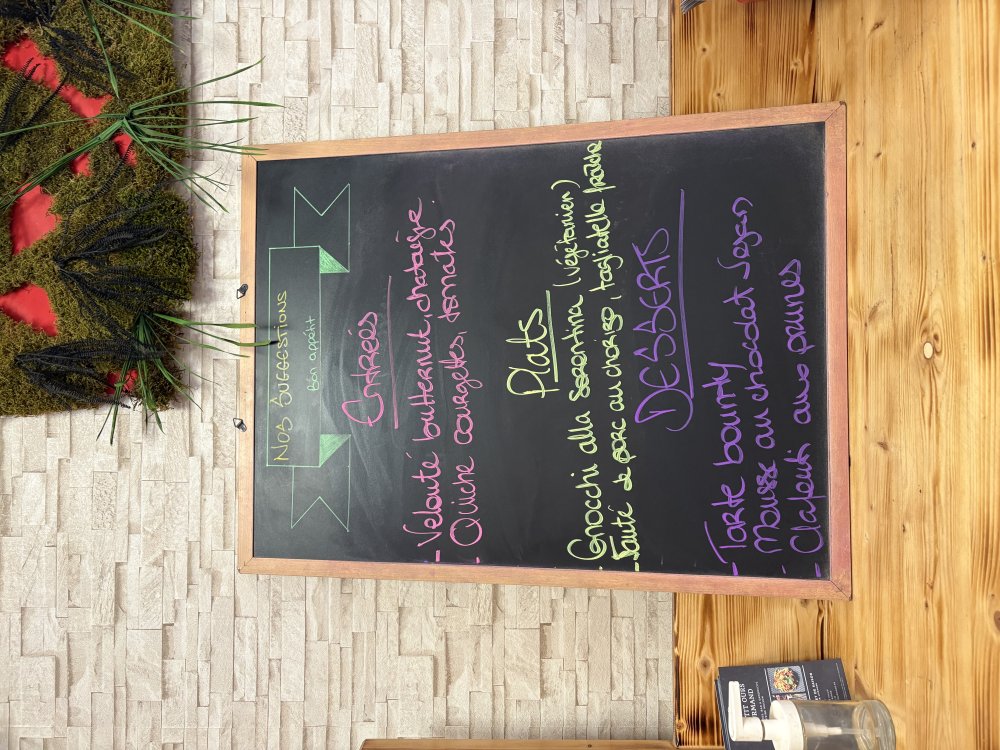 NOS SUGGESTIONS
Bon appétit
Entrées
- Velouté butternut, chataigne.
- Quiche courgettes, tomates
Plats
- Gnocchi alla sorentina (végétarien)
- Sauté de porc au chorizo, tagliatelle fraîche
DESSERTS
- Tarte bounty
- Mousse au chocolat
- Clafouti aux prunes